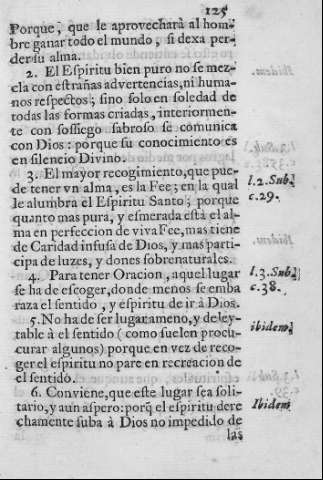 125
Porque, que le aprovecharà al hom-
bre ganar todo el mundo, si dexa per-
der su alma.
2. El Espiritu bien puro no se mez-
cla con estrañas advertencias, ni huma-
nos respectos; sino solo en soledad de
todas las formas criadas, interiormen-
te con sossiego sabroso se comunica
con Dios: porque su conocimiento es
en silencio Divino.
3. El mayor recogimiento, que pue-
de tener vn alma, es la Fee; en la qual
le alumbra el Espiritu Santo; porque
quanto mas pura, y esmerada està el al-
ma en perfeccion de viva Fee, mas tiene
de Caridad infusa de Dios, y mas parti-
cipa de luzes, y dones sobrenaturales.
4. Para tener Oracion, aquel lugar
se ha de escoger, donde menos se emba
raza el sentido, y espiritu de ir à Dios.
5. No ha de ser lugar ameno, y deley-
table à el sentido (como suelen procu-
curar algunos) porque en vez de reco-
ger el espiritu no pare en recreacion de
el sentido.
6. Conviene, que este lugar sea soli-
tario, y aun aspero: porq̃ el espiritu dere
chamente suba à Dios no impedido de
las
l. 2. Sub.
c. 29.
l. 3. Sub.
c. 38.
ibidem
Ibidem